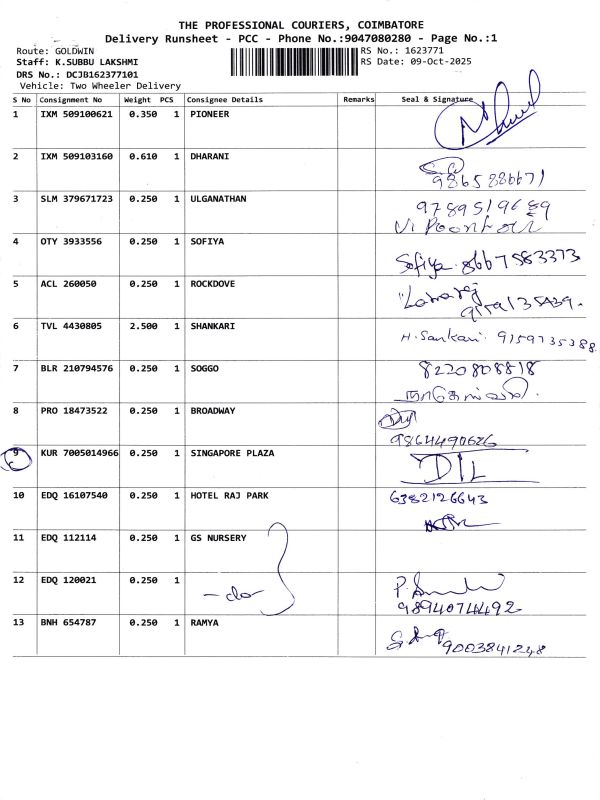 THE PROFESSIONAL COURIERS, COIMBATORE
Delivery Runsheet - PCC - Phone No.:9047080280 - Page No.:1
Route: GOLDWIN RS No.: 1623771
Staff: K.SUBBU LAKSHMI RS Date: 09-Oct-2025
DRS No.: DCJB162377101
Vehicle: Two Wheeler Delivery
S No Consignment No Weight PCS Consignee Details Remarks Seal & Signature
1 IXM 509100621 0.350 1 PIONEER
2 IXM 509103160 0.610 1 DHARANI
9865886671
3 SLM 379671723 0.250 1 ULGANATHAN
9789519689
4 OTY 3933556 0.250 1 SOFIYA
Sofiya. 8667583373
5 ACL 260050 0.250 1 ROCKDOVE
6 TVL 4430805 2.500 1 SHANKARI
H. Sankari. 9159735388
7 BLR 210794576 0.250 1 SOGGO
8220808818
8 PRO 18473522 0.250 1 BROADWAY
9864490626
9 KUR 7005014966 0.250 1 SINGAPORE PLAZA
DIL
10 EDQ 16107540 0.250 1 HOTEL RAJ PARK
6382126643
11 EDQ 112114 0.250 1 GS NURSERY
12 EDQ 120021 0.250 1
- do -
9894074492
13 BNH 654787 0.250 1 RAMYA
9003841248